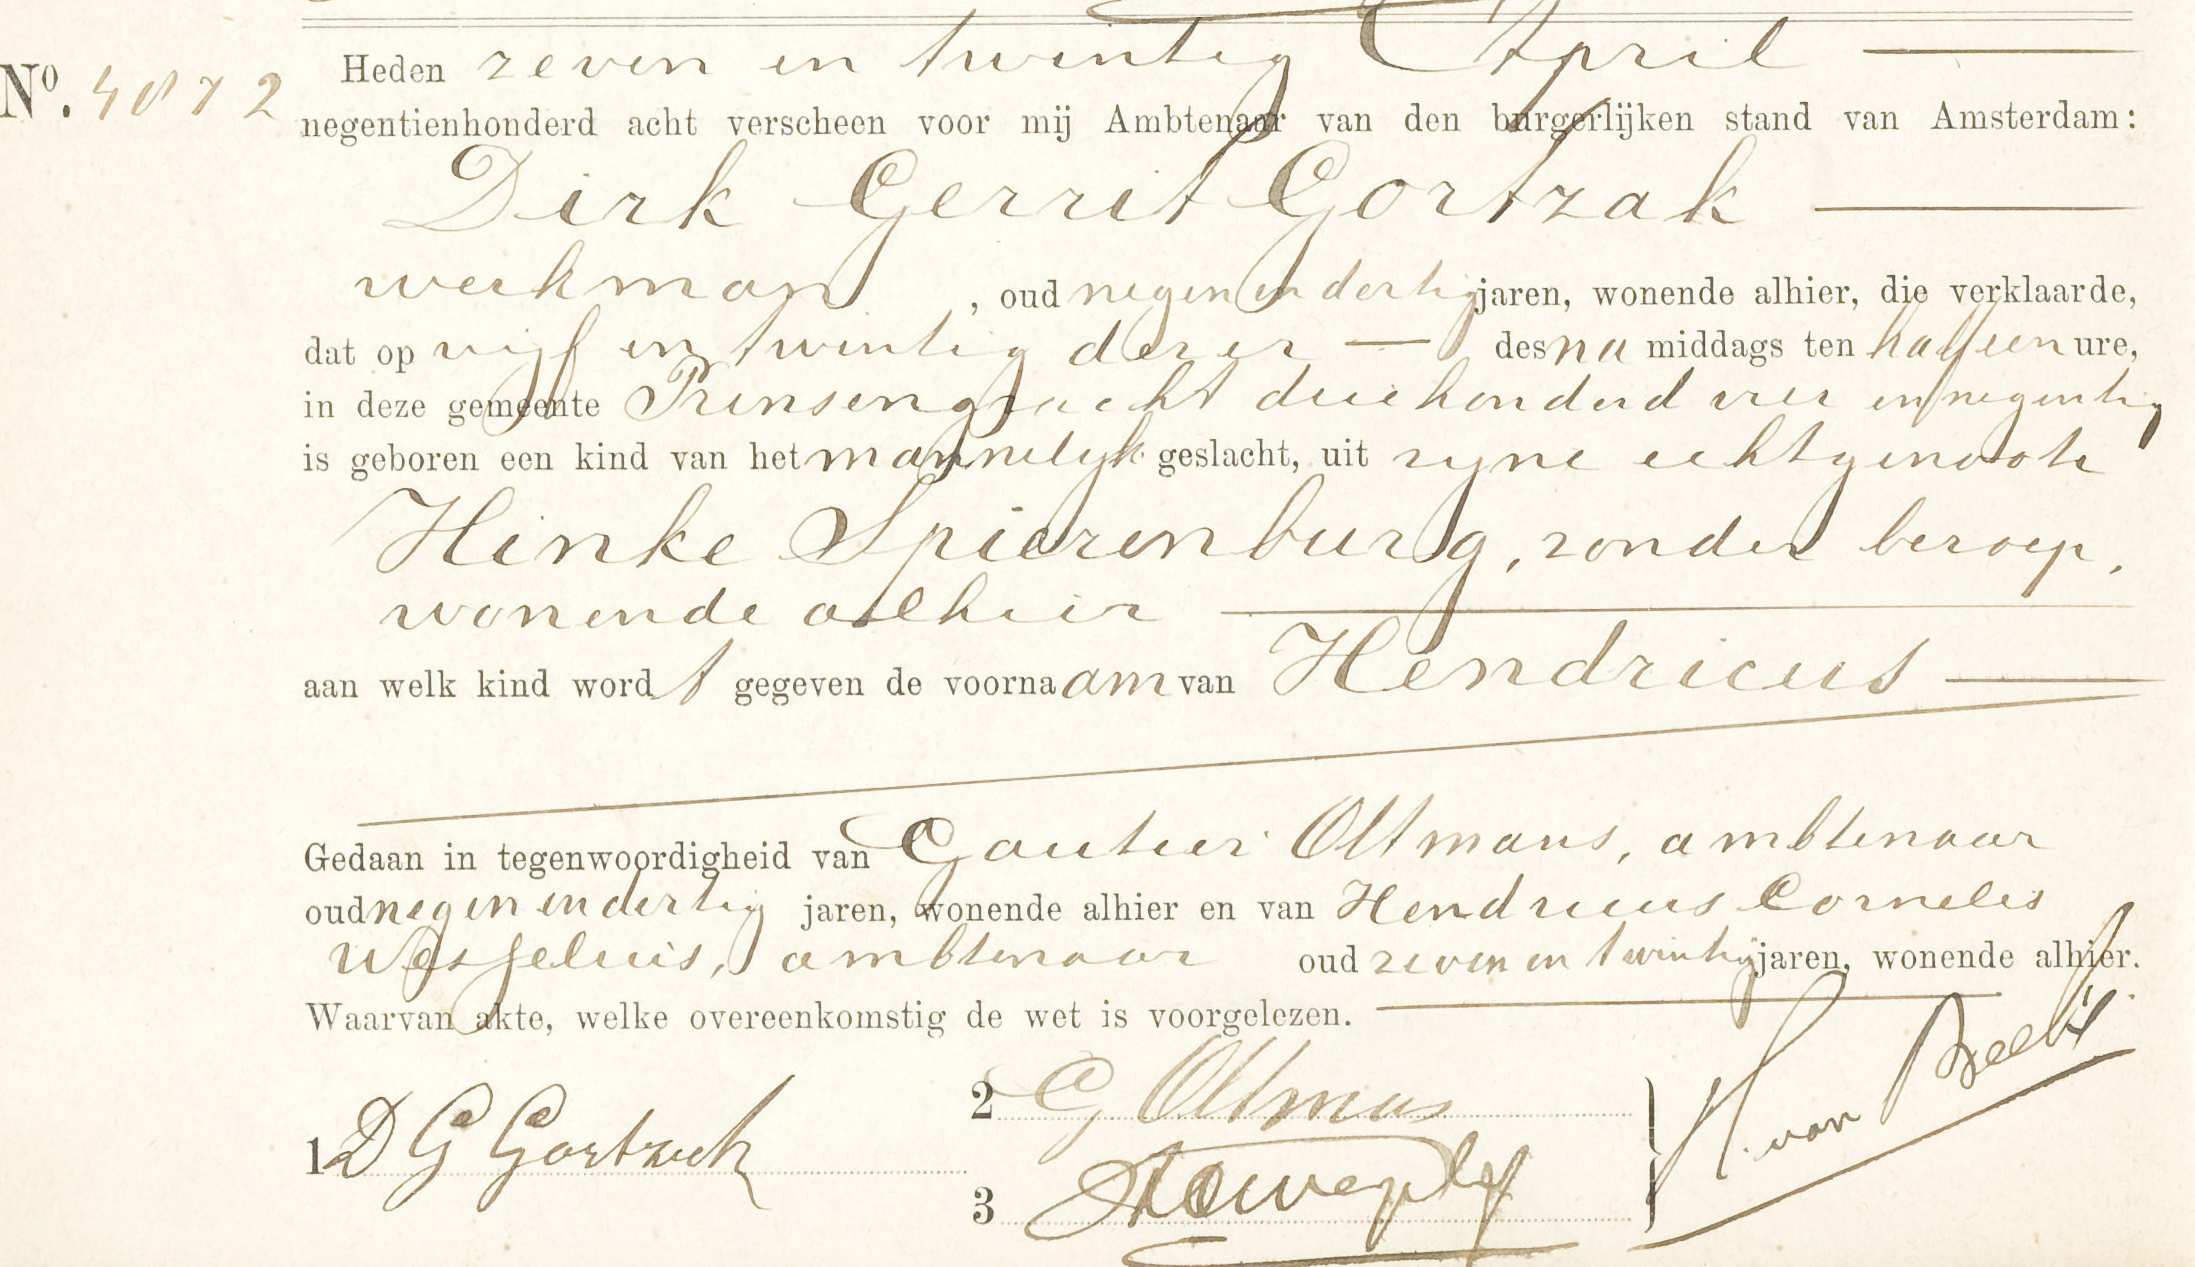 Nº. 4872 Heden zeven en twintig April
negentienhonderd acht verscheen voor mij Ambtenaar van den burgerlijken stand van Amsterdam:
Dirk Gerrit Gortzak
werkman, oud negen en dertig jaren, wonende alhier, die verklaarde,
dat op vijf en twintig dezer des na middags ten half een ure,
in deze gemeente Prinsengracht driehonderd vier en negentig
is geboren een kind van het mannelyk geslacht, uit zyne echtgenoote
Hinke Spierenburg, zonder beroep,
wonende alhier
aan welk kind wordt gegeven de voornaam van Hendricus
Gedaan in tegenwoordigheid van Gautier Oltmans, ambtenaar
oud negen en dertig jaren, wonende alhier en van Hendricus Cornelis
ambtenaar oud zeven en twintig jaren, wonende alhier.
Waarvan akte, welke overeenkomstig de wet is voorgelezen.
1 D G Gortzak
2 G Oltmans
3
H. van